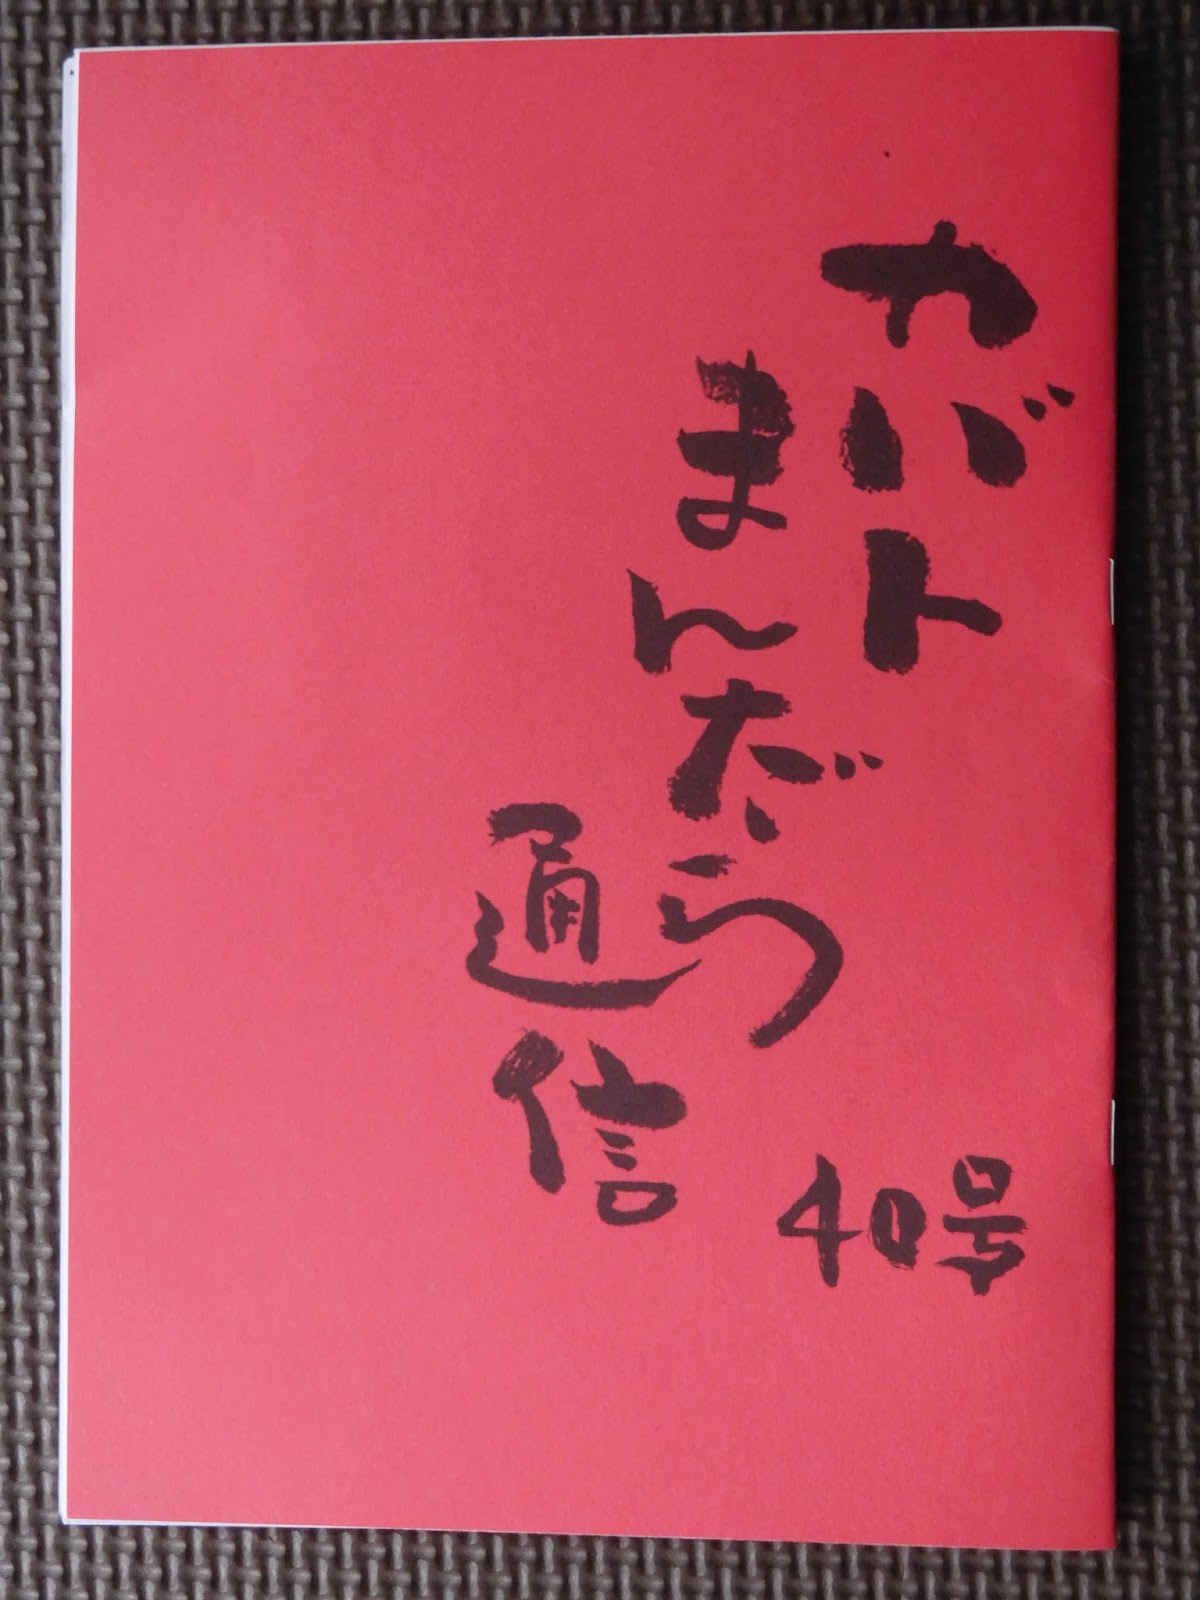 カバト
まんだら
通信
40号